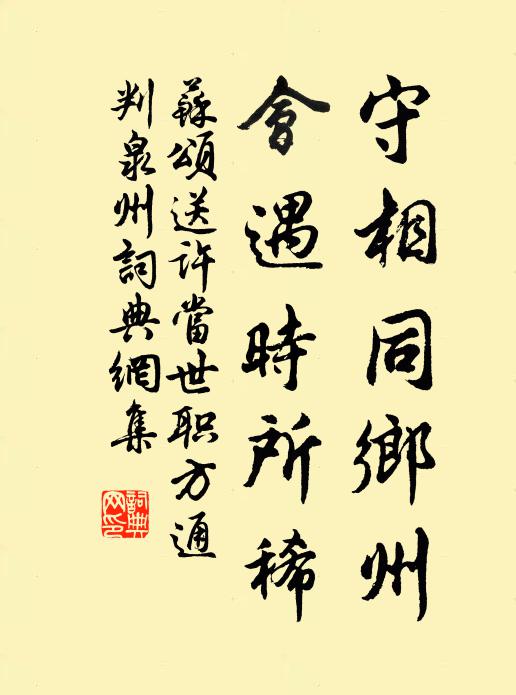 守相同鄉州
會遇時所稀
蘇頌送許當世职方通
判泉州詞典網集
詞典
网印